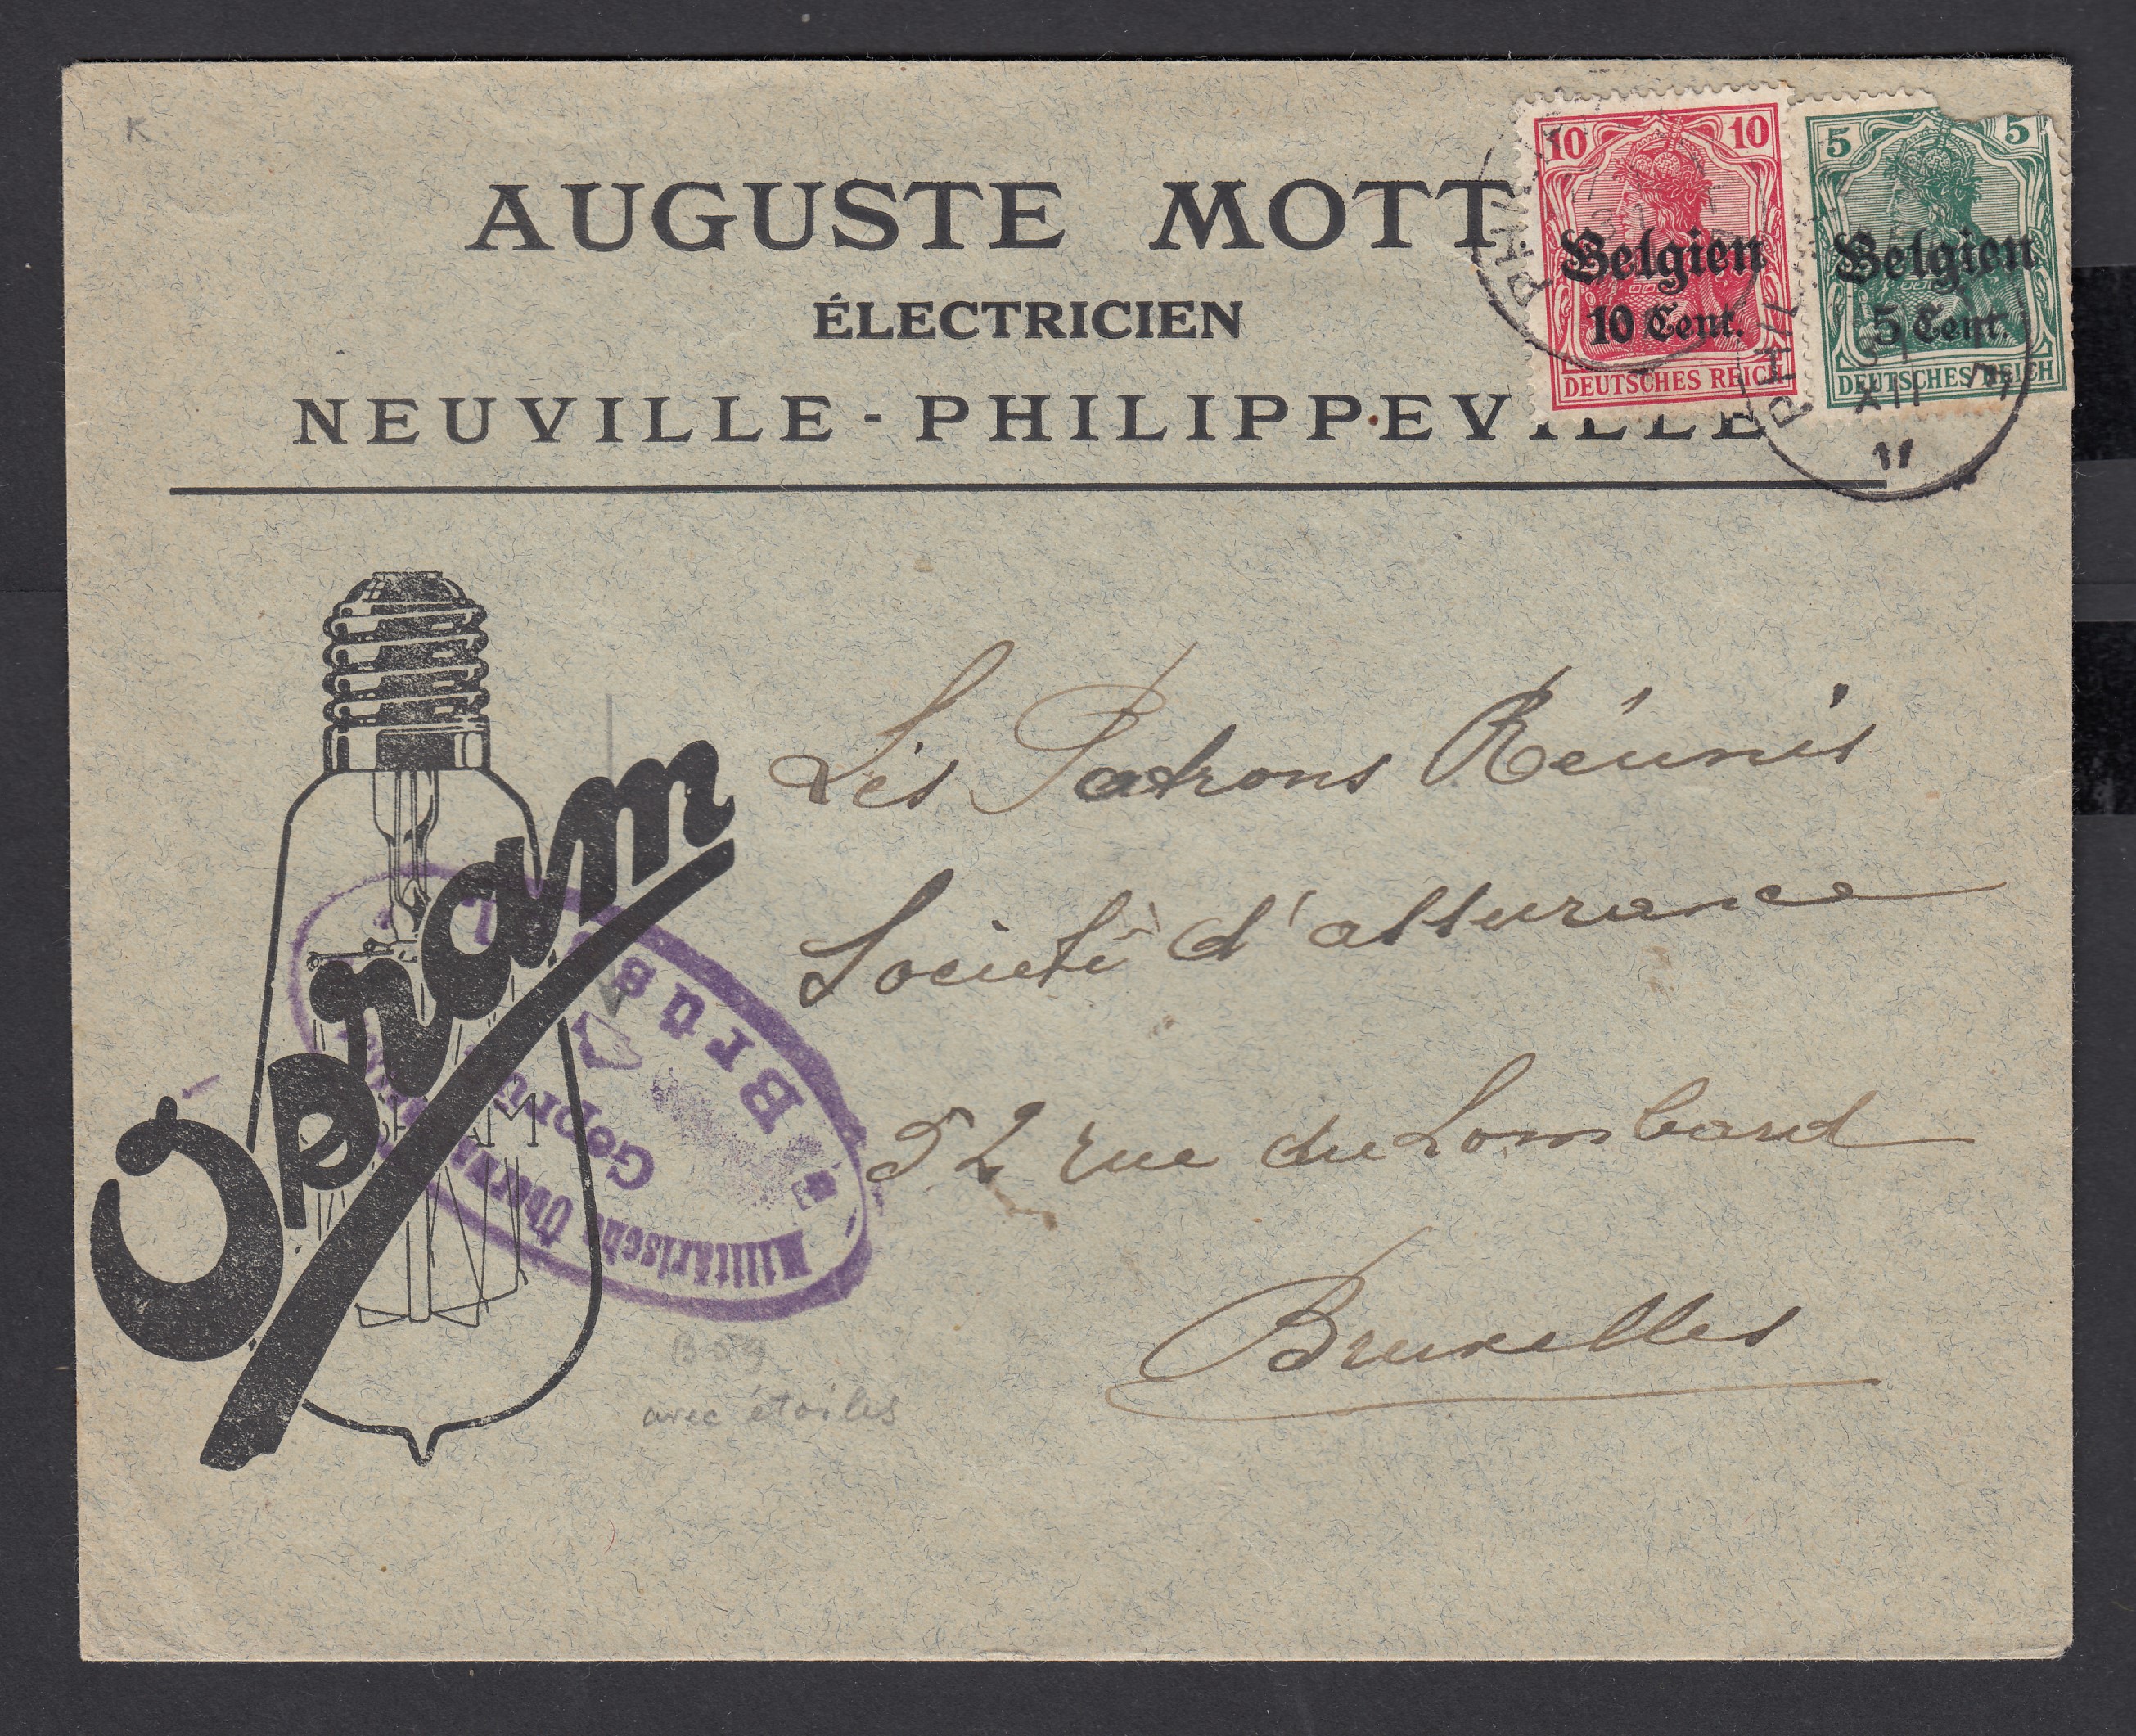 K
AUGUSTE MOTT
ÉLECTRICIEN
NEUVILLE - PHILIPPEVILLE
10 10
Belgien
10 Cent.
DEUTSCHES REICH
5 5
Belgien
5 Cent.
DEUTSCHES REICH
31
XII
Opram
Les Patrons Réunis
Société d'assurance
52 rue du Lombard
Bruxelles
Militärische
B59
avec étoiles